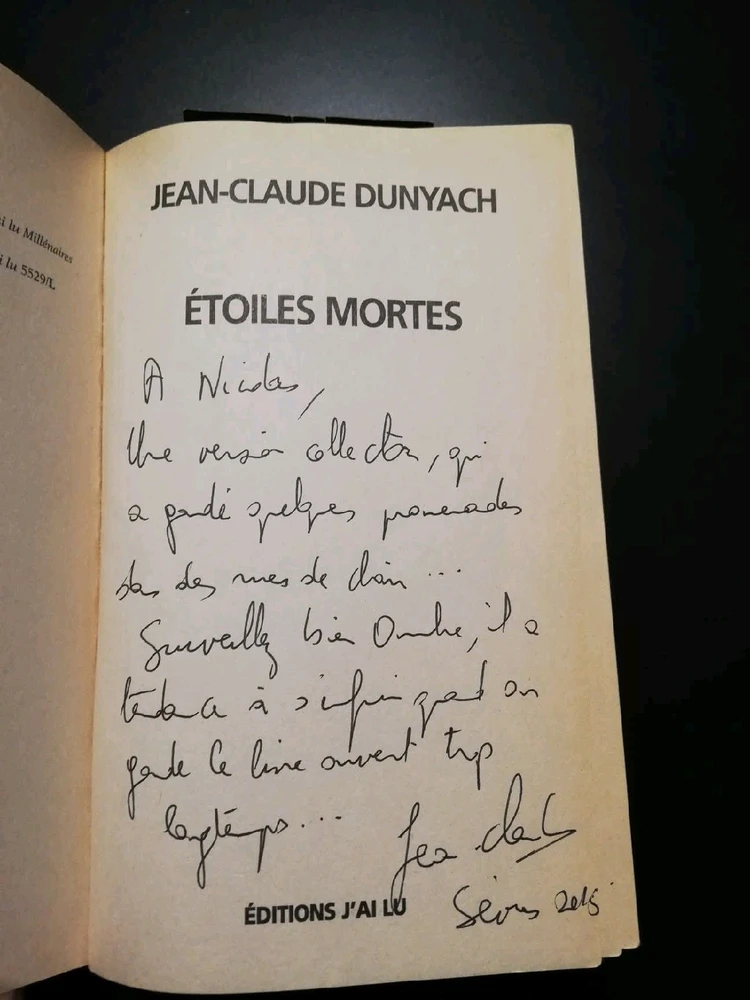 i lu Millénaires
i lu 5529/L
JEAN-CLAUDE DUNYACH
ÉTOILES MORTES
A Nicolas,
Une version collector, qui
a gardé quelques promenades
dans des rues de chair...
Surveillez bien Ombre, il a
tendance à s'enfuir quand on
garde le livre ouvert trop
longtemps...
Jean-Claude
Sèvres
ÉDITIONS J'AI LU